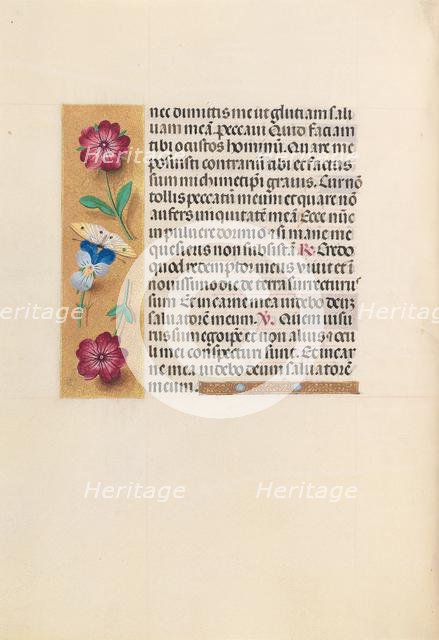 nec dimittis me ut glutiam sali
uam meā. Peccaui Quid faciam
tibi o custos hominū. Quare me
posuisti contrariū tibi et factus
sum michimetipi grauis. Cur nō
tollis peccatū meum et quare nō
aufers iniquitatē meam. Ecce nūc
in puluere dormio et si mane me
quesieris non subsistā. R. Credo
quod redemptor meus viuit et in
nouissimo die de terra surrecturus
sum Et in carne mea videbo deū
saluatorē meum. V. Quem visu
rus sum ego ipse et non alius et ocu
li mei conspecturi sunt. Et in car
ne mea videbo deum saluatorē
meum.
Heritage
Heritage
Heritage
Heritage
Heritage
Heritage